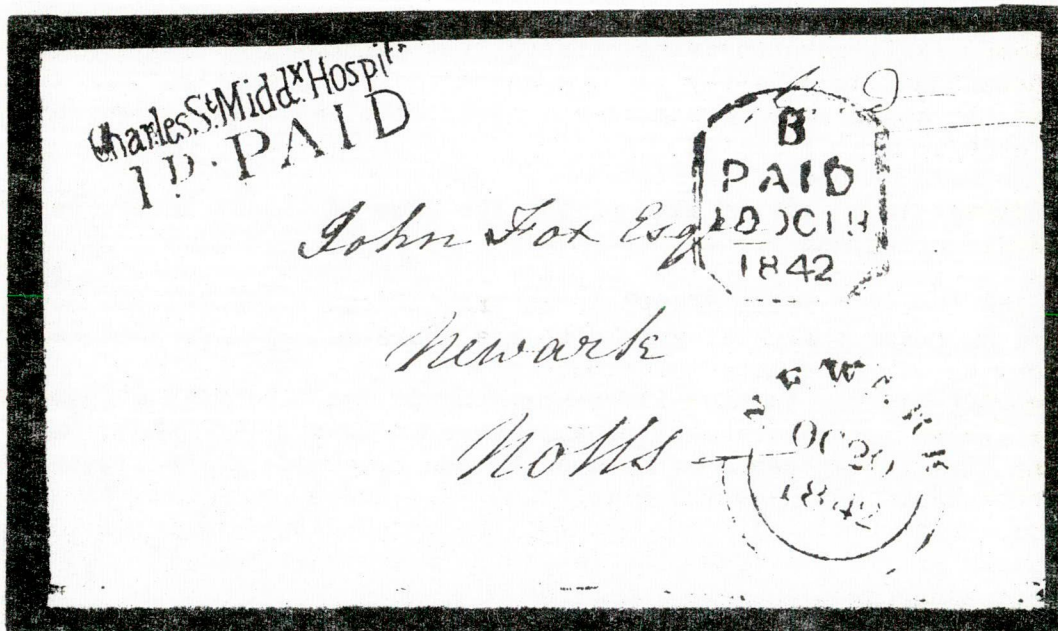 Charles.St.Midd.x Hospit
1D. PAID
B
PAID
OC
1842
John Fox Esq
Newark
Notts
OC 20
1842